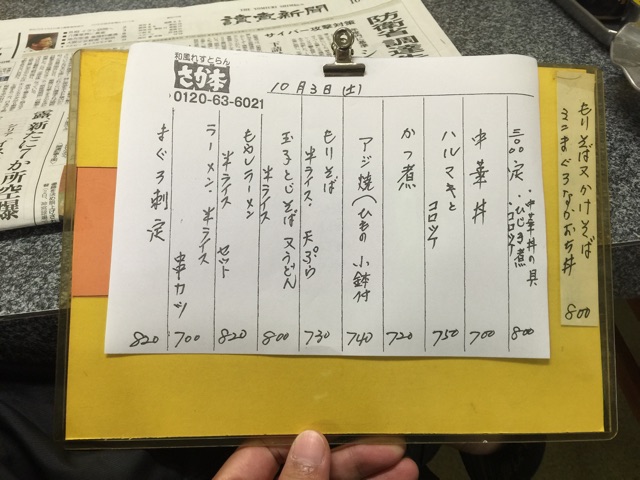 讀賣新聞
サイバー攻撃対策
防衛省 調達
露 新たに7か所空爆
和風れすとらん
さか本
0120-63-6021
10月3日(土)
もりそば又かけそば
ミニまぐろなかおち丼
800
三〇〇定
・中華丼の具
・ひじき煮
・コロッケ
800
中華丼
700
ハルマキと
コロッケ
750
かつ煮
720
アジ焼(ひもの 小鉢付
740
もりそば
半ライス・天ぷら
730
玉子とじそば又うどん
半ライス
800
もやしラーメン
半ライス セット
820
ラーメン・半ライス
串カツ
700
まぐろ刺定
820